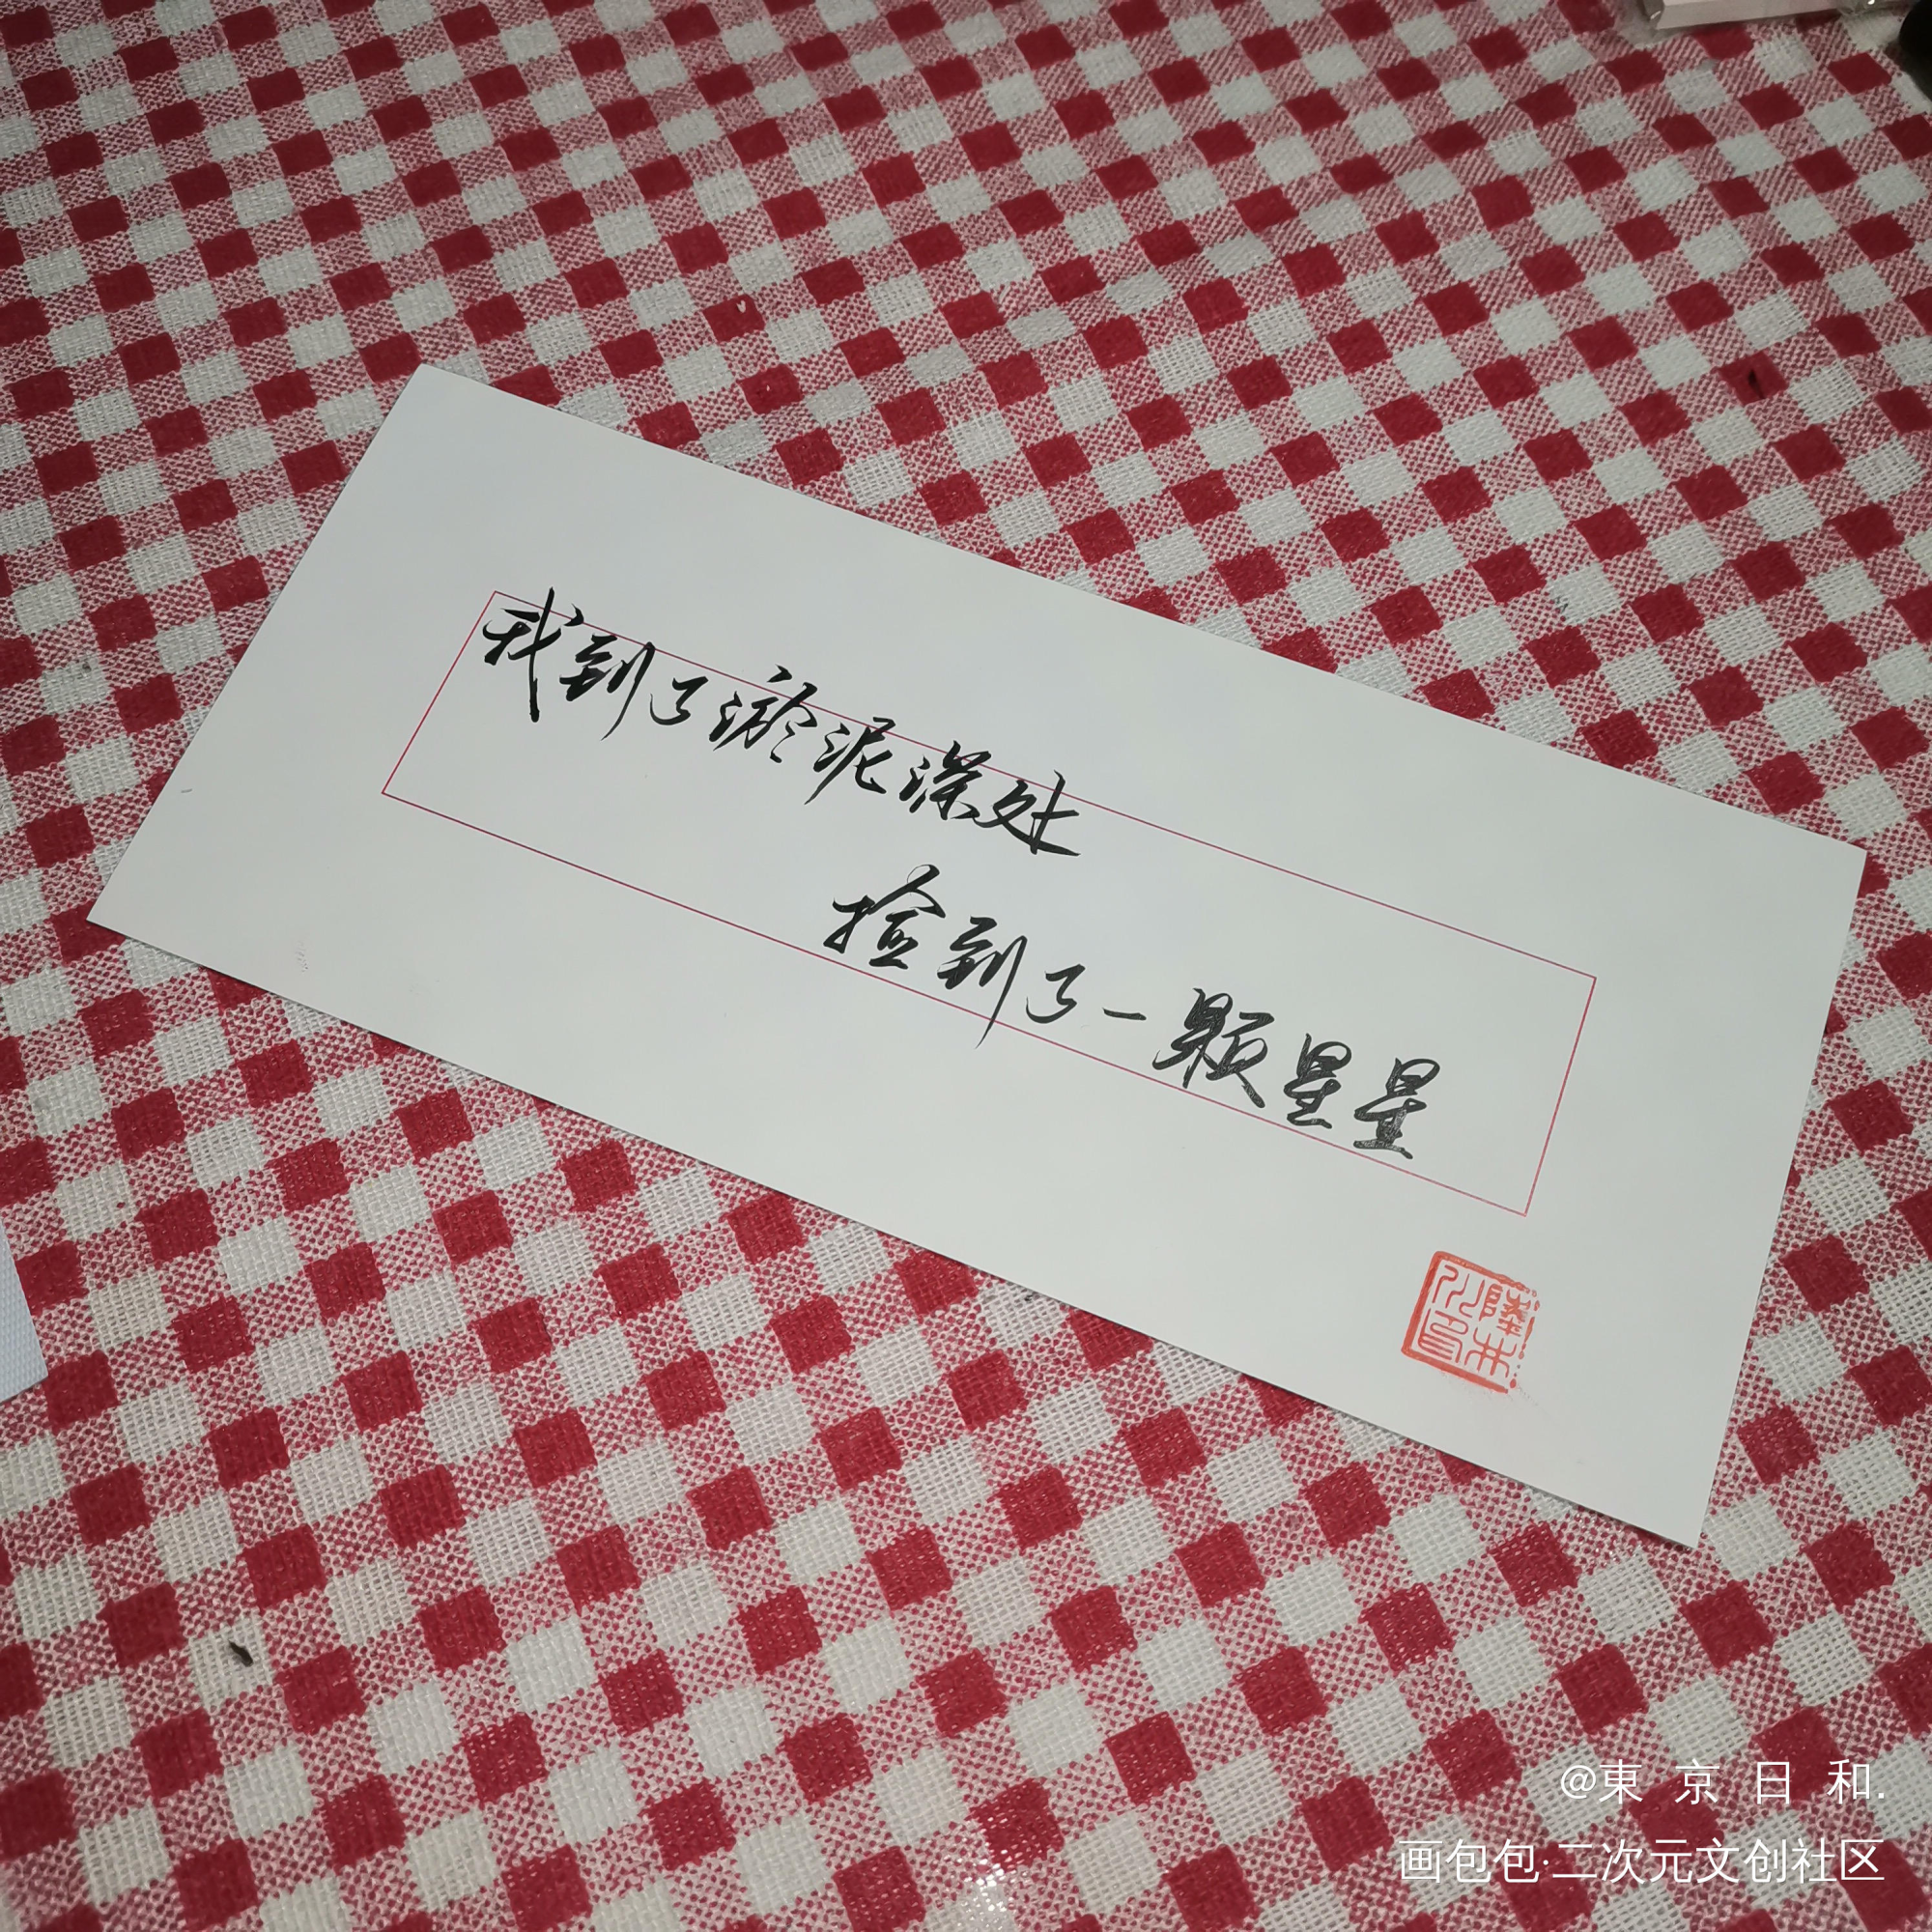 我到了淤泥深处
捡到了一颗星星
@東 京 日 和.
画包包·二次元文创社区